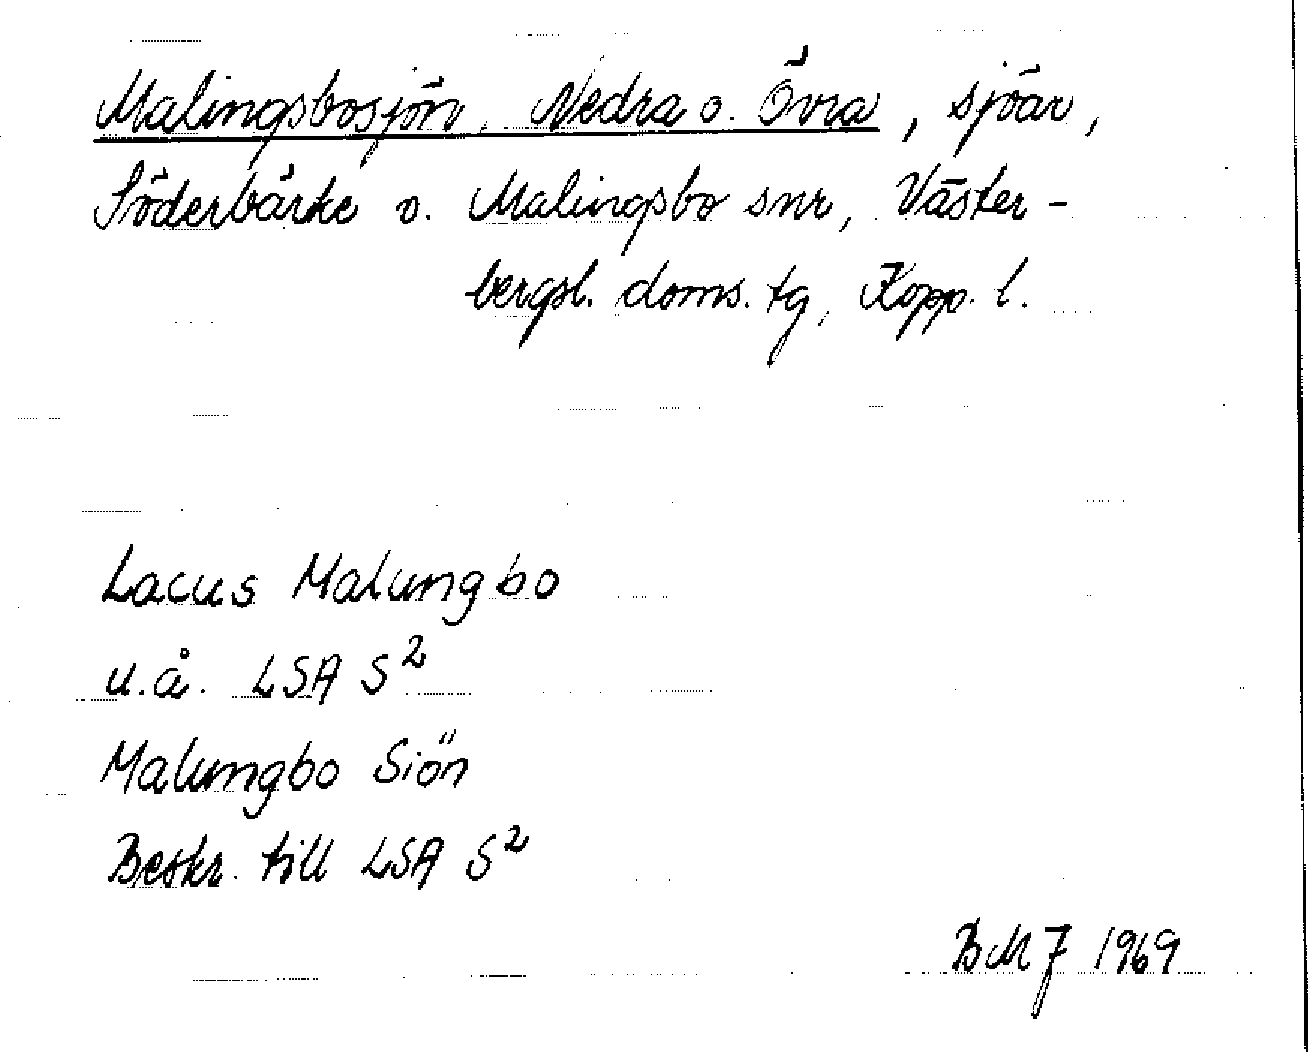 Malingsbosjön, Nedra o. Övra, sjöar,
Söderbärke o. Malingsbo snr, Väster-
bergsl. doms. tg, Kopp. l.
Lacus Malungbo
u.å. LSA S²
Malungbo Siön
Beskr. till LSA S²
BMJ 1969